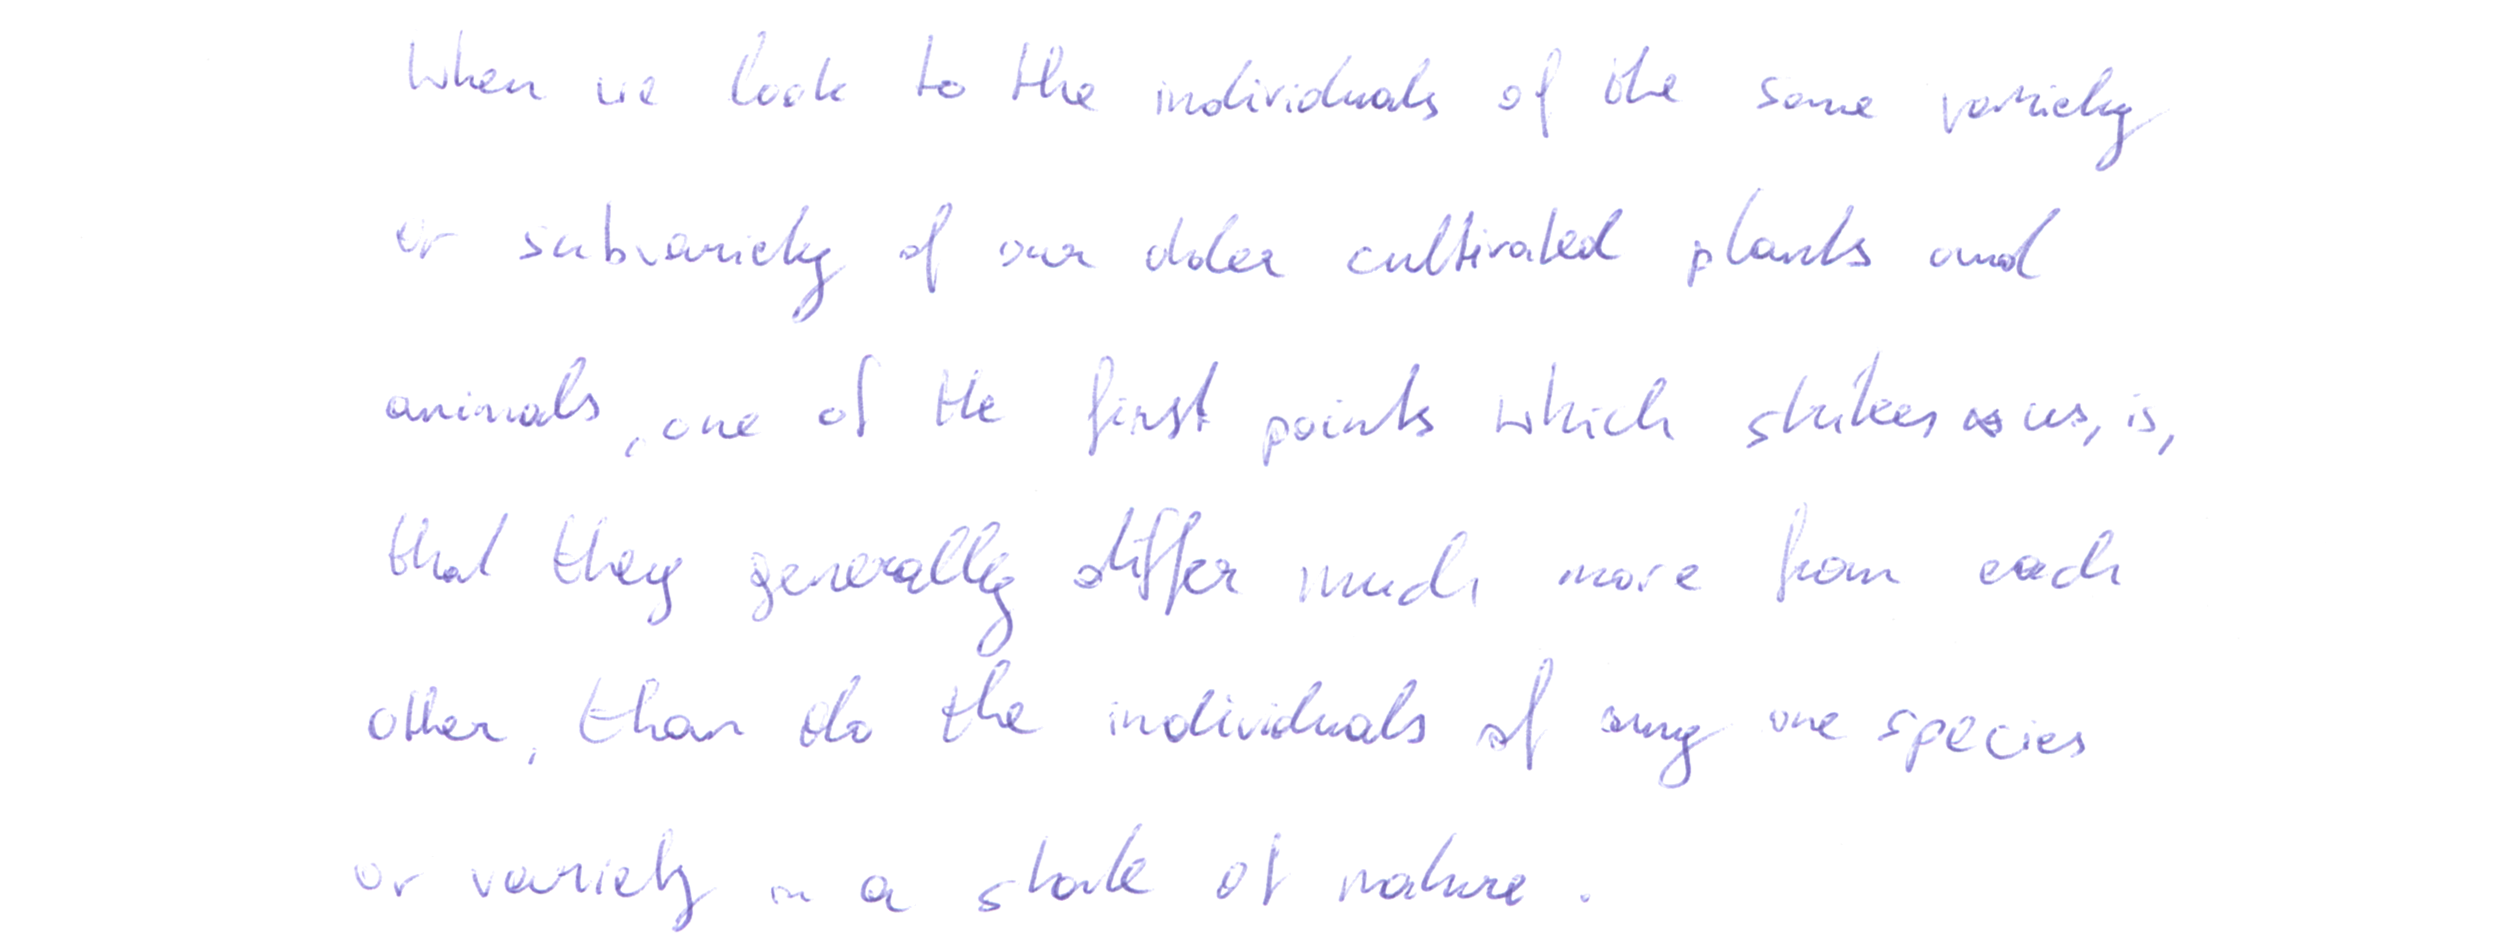 When we look to the individuals of the same variety
or subvariety of our older cultivated plants and
animals, one of the first points which strikes us, is,
that they generally differ much more from each
other, than do the individuals of any one species
or variety in a state of nature.